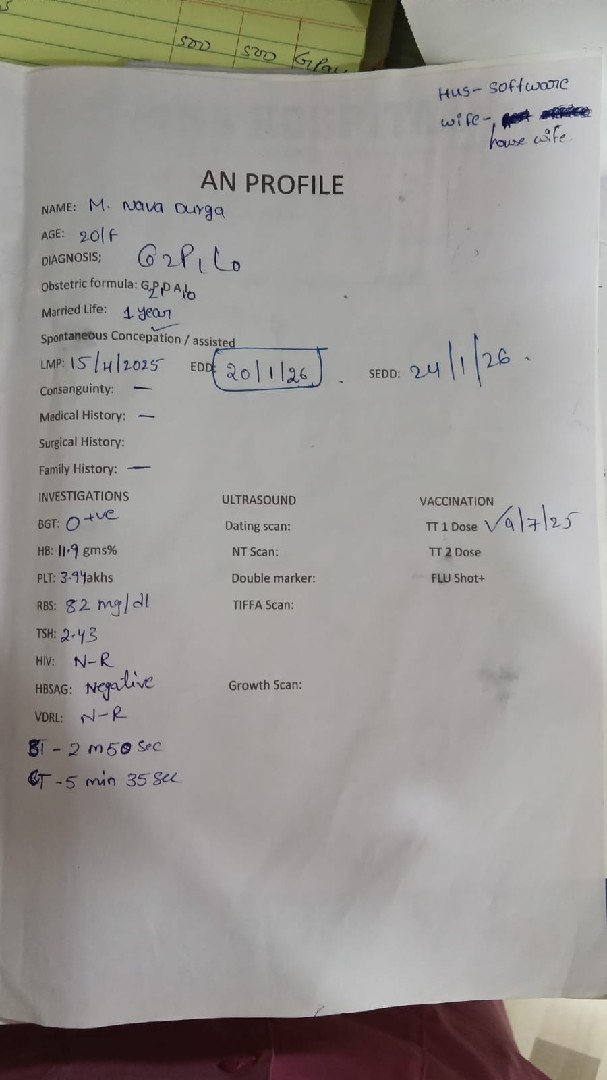 500 500
Hus- software
wife-
house wife.
AN PROFILE
NAME: M. Nava Durga
AGE: 20/F
DIAGNOSIS; G2P1L0
Obstetric formula: G2P1
Married Life: 1 year
Spontaneous Concepation / assisted
LMP: 15/4/2025 EDD: 20/1/26. SEDD: 24/1/26.
Consanguinty: —
Medical History: —
Surgical History:
Family History: —
INVESTIGATIONS ULTRASOUND VACCINATION
BGT: O+ve Dating scan: TT 1 Dose √9/7/25
HB: 11.9 gms% NT Scan: TT 2 Dose
PLT: 3.94lakhs Double marker: FLU Shot+
RBS: 82 mg/dl TIFFA Scan:
TSH: 2.43
HIV: N-R
HBSAG: Negative Growth Scan:
VDRL: N-R
BT - 2 m50 sec
CT - 5 min 35 sec